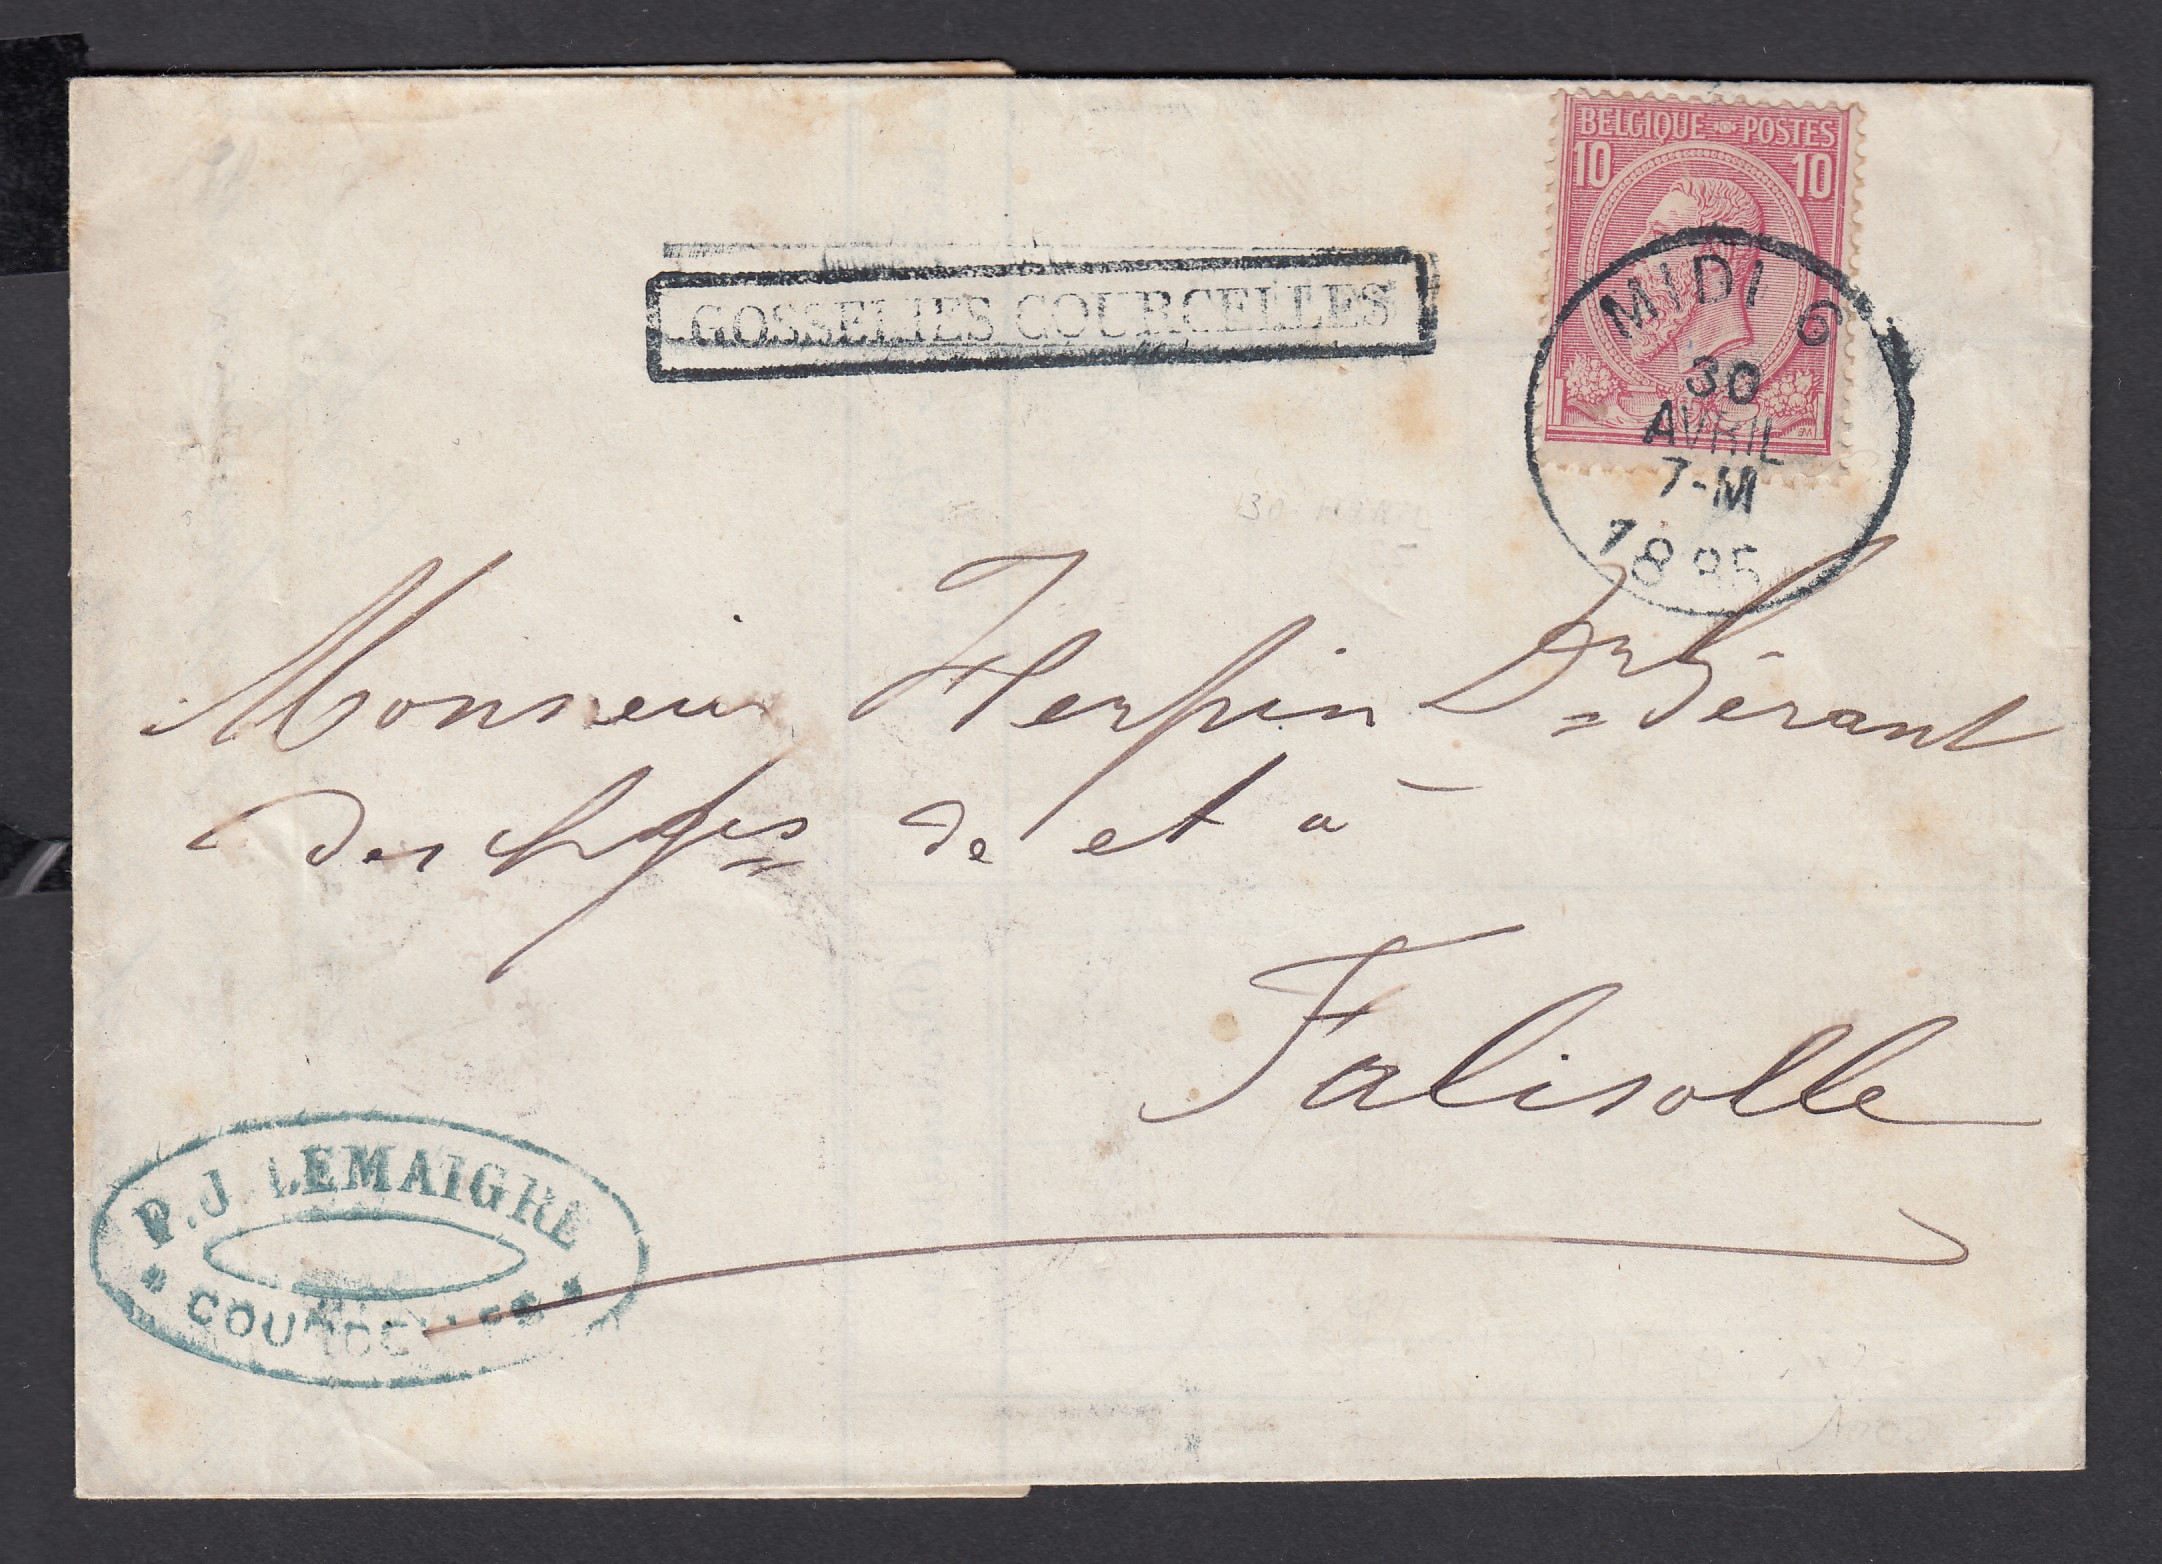 BELGIQUE POSTES
10 10
GOSSELIES COURCELLES
MIDI 6
30
AVRIL
7-M
1885
Monsieur Herpin Dr Gérant
des chges de et à
Falisolle
P.J. LEMAIGRE
* COURCELLES *